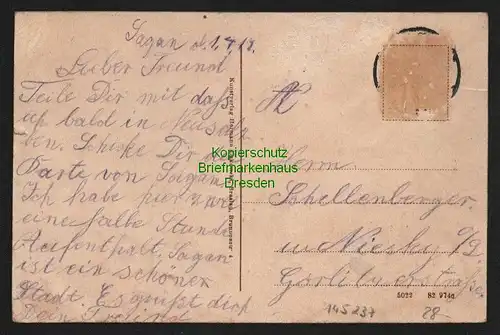 Sagan d. 1.7.19.
Lieber Freund
Teile Dir mit daß
ich bald in
ben. Schicke Dir
Karte von Sagan.
Ich habe hier nur
eine halbe Stunde
Aufenthalt. Sagan
ist ein schöner
Stadt. Es grüßt dich
Dein Freund
Kopierschutz
Briefmarkenhaus
Dresden
Herrn
Schellenberger.
in Niesky O/L.
Görlitzerstraße
5022 82 974a
145237 28-